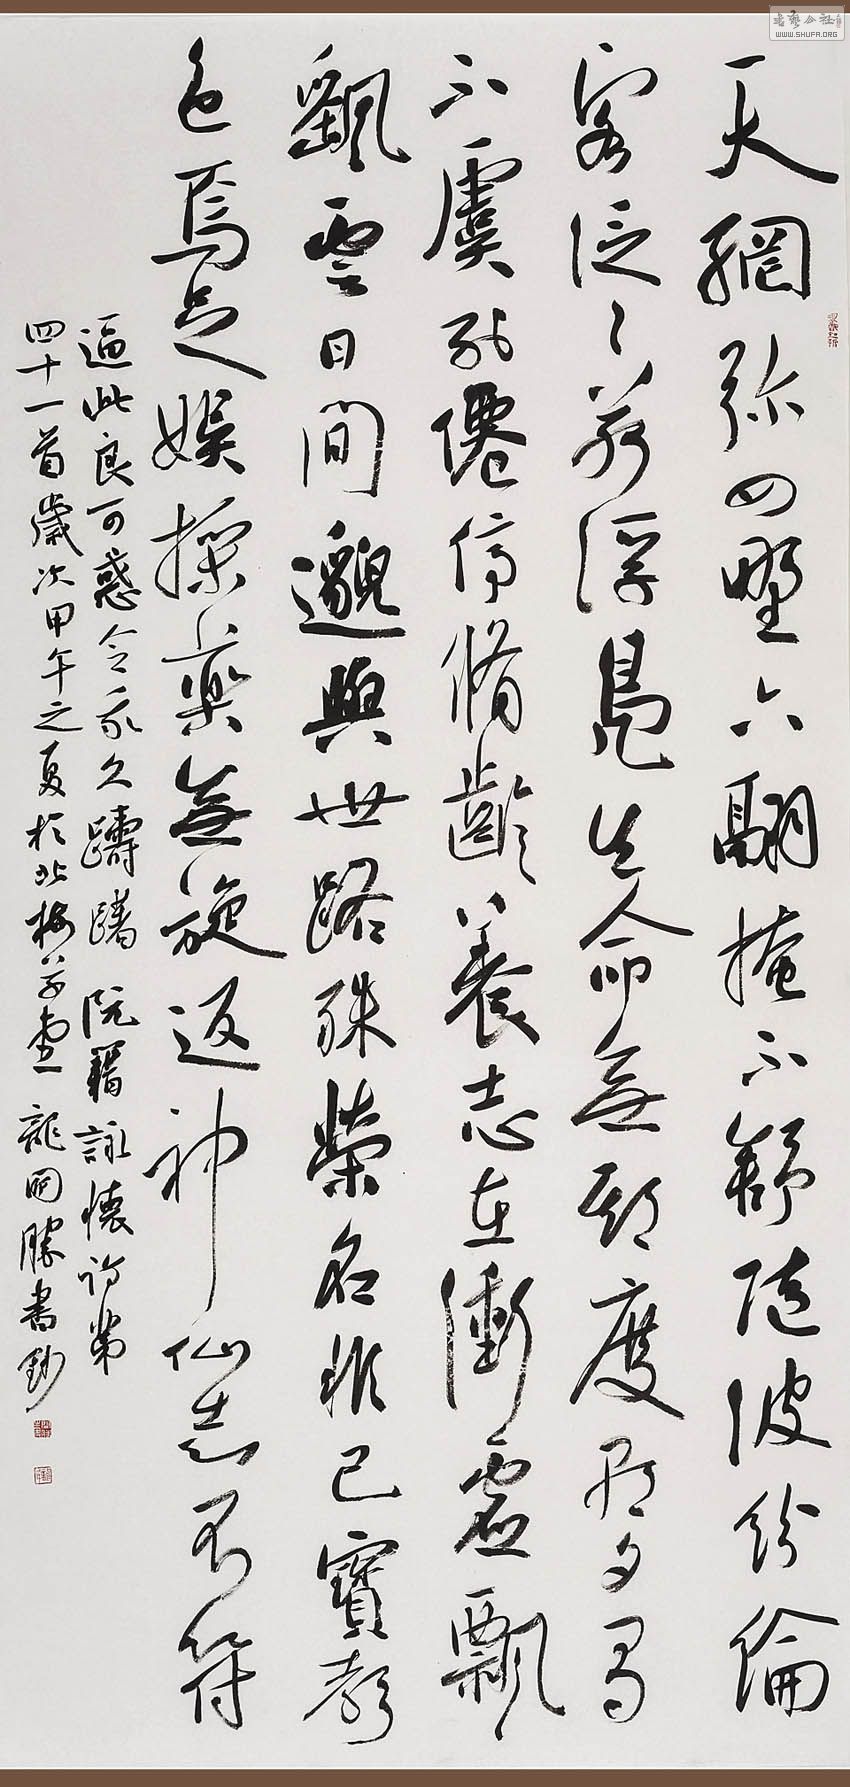 天網弥四野六翮掩不舒隨波紛綸
客泛〻若浮鳧生命無期度朝夕有
不虞列僊停脩齡養志在衝虛飄
颻雲日間邈與世路殊榮名非己寶聲
色焉足娛採藥無旋返神仙志不符
逼此良可惑令我久躊躇 阮籍詠懷詩第
四十一首歲次甲午之夏於北 龍開勝書鈔
書藝公社
WWW.SHUFA.ORG